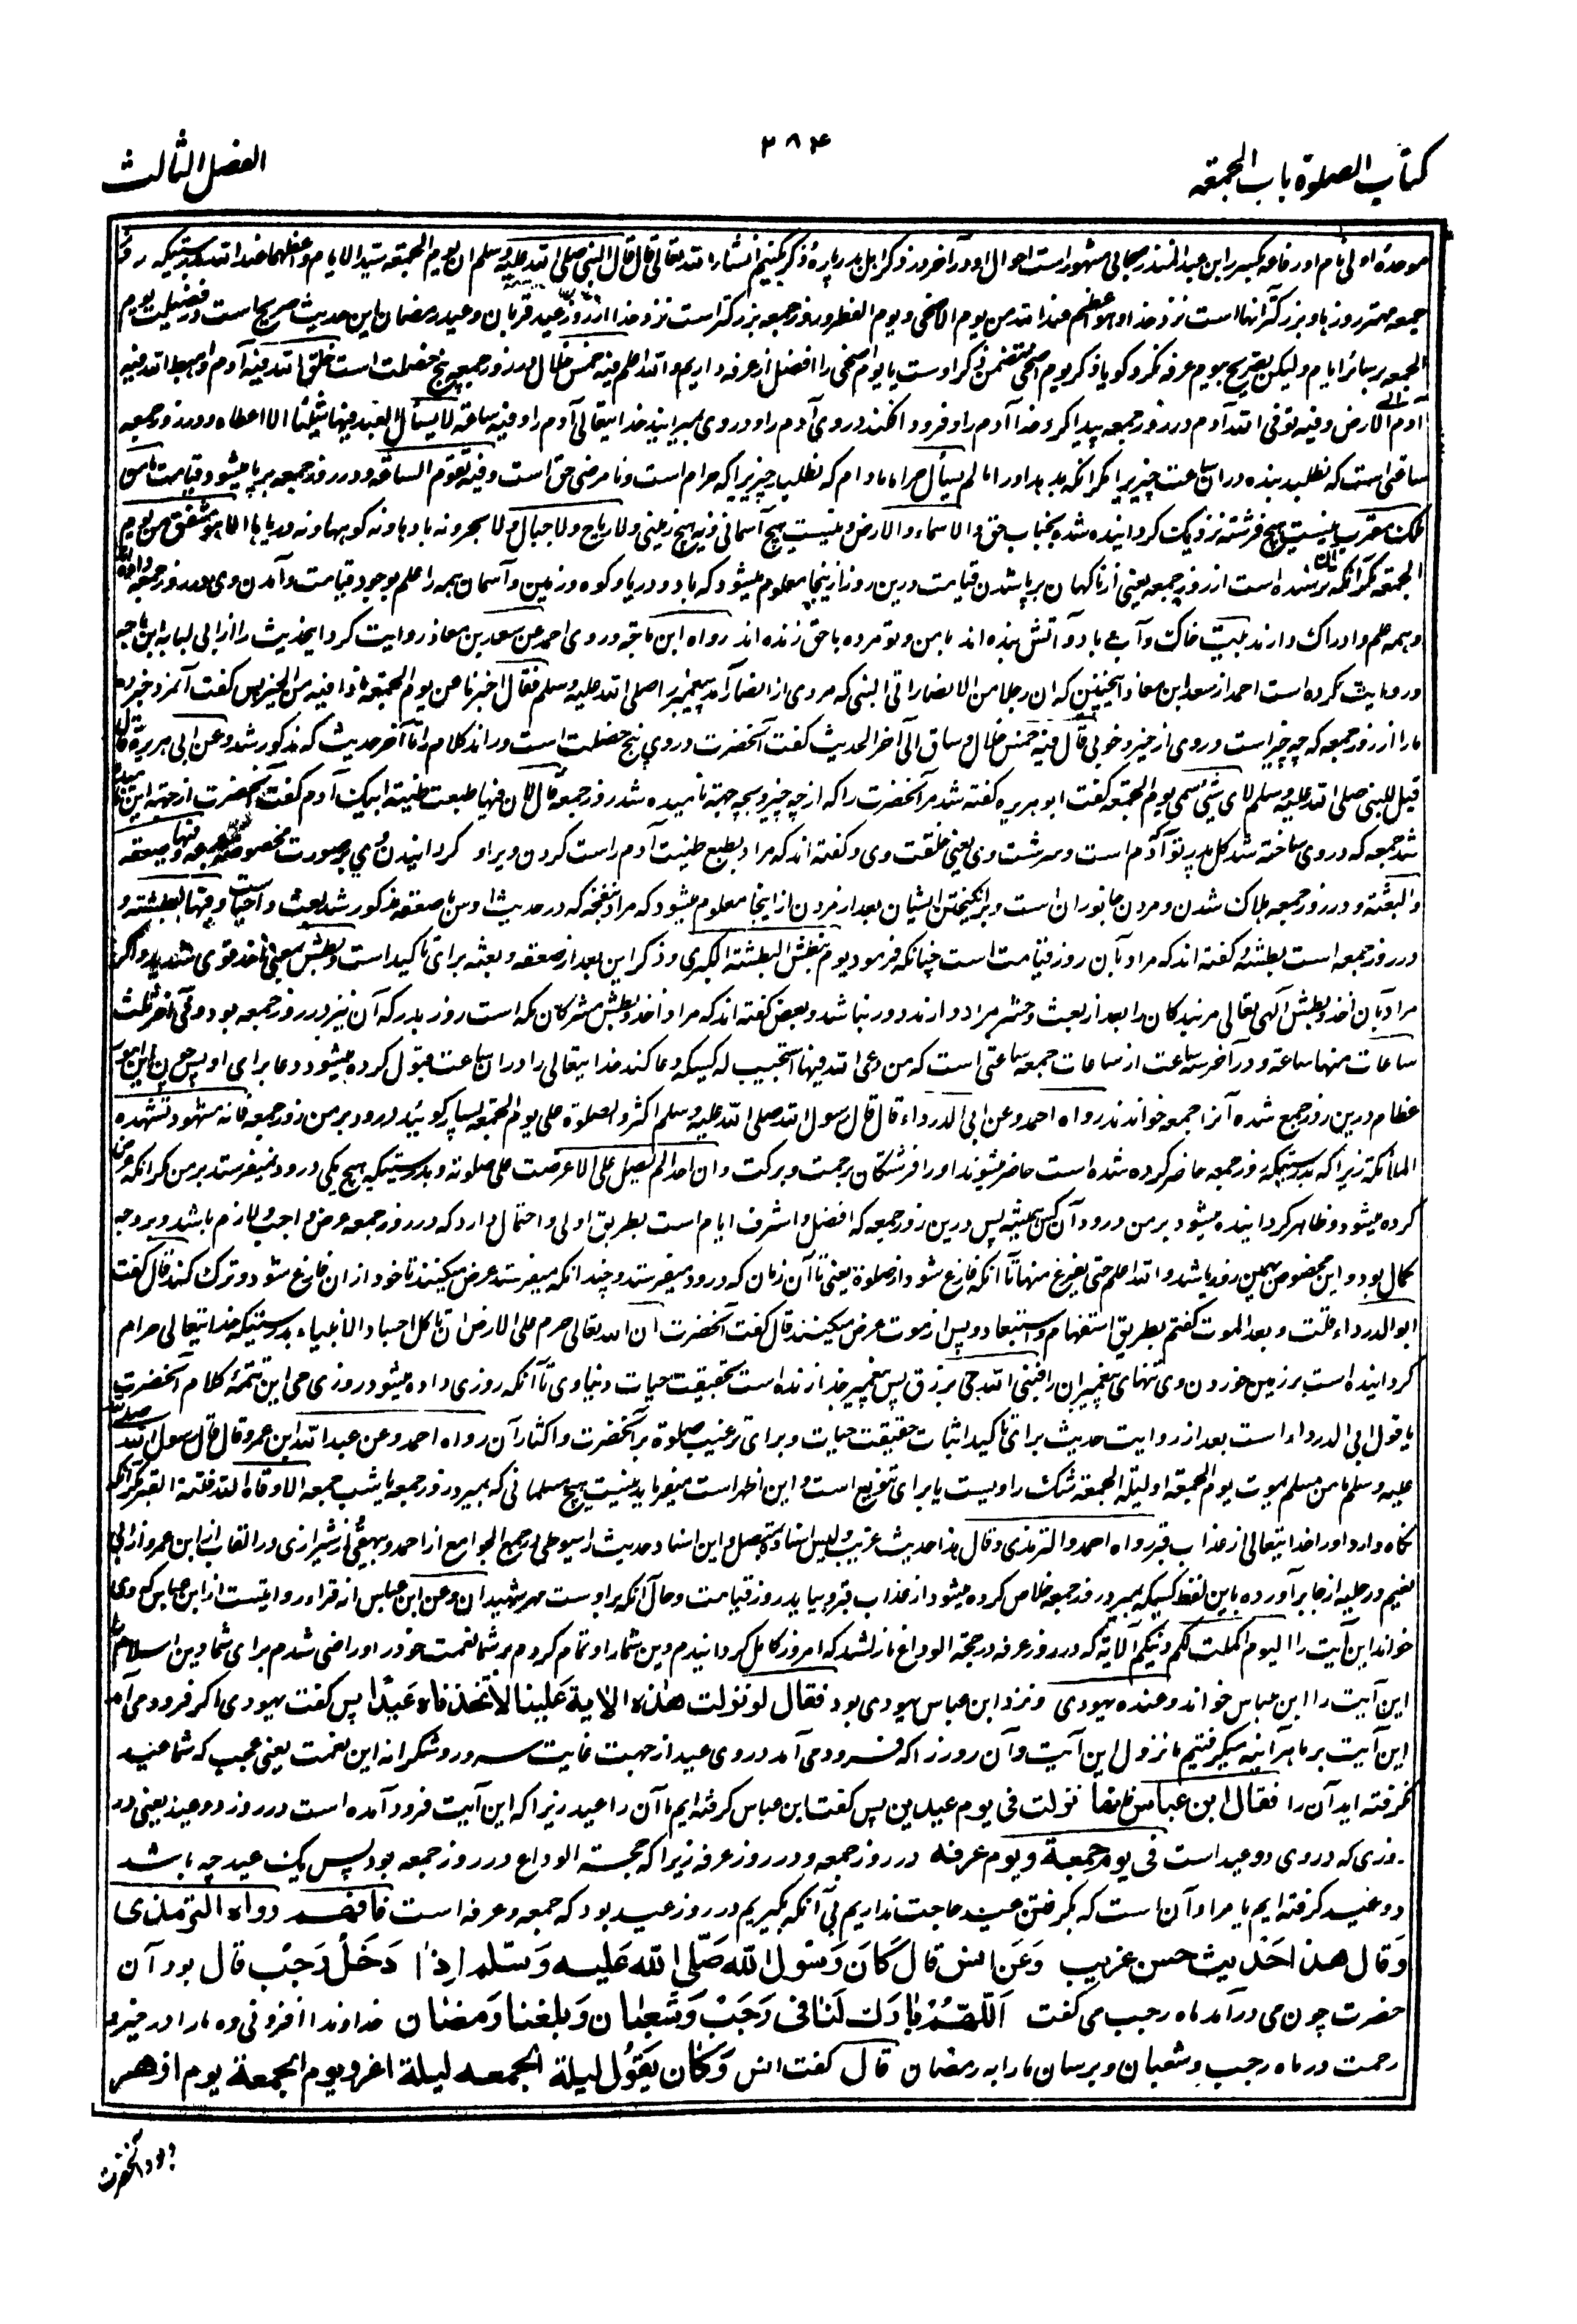 کتاب الصلوة باب الجمعه
۲۸۴
الفصل الثالث
موحدهٔ اولی نام او رفاعه بکسر را ابن عبد المنذر صحابی مشهور است احوال او در آخر در ذکر اهل بدر پاره ذکر کنیم انشاء الله تعالی قال قال النبی صلی الله علیه وسلم ان یوم الجمعة سید الایام و اعظمها عند الله بدرستیکه روز
جمعه مهتر روزها و بزرگتر آنها است نزد خدا و هو اعظم عند الله من یوم الاضحی و یوم الفطر و روز جمعه بزرگتر است نزد خدا از روز عید قربان و عید رمضان این حدیث صریح است در فضیلت یوم
الجمعه بر سائر ایام ولیکن تصریح بیوم عرفه نکرد گویا ذکر یوم اضحی متضمن ذکر اوست یا یوم اضحی را افضل از عرفه داریم والله اعلم فیه خمس خلال در روز جمعه پنج خصلت است خلق الله فیه آدم و اهبط الله فیه
آدم الی الارض و فیه توفی الله آدم در روز جمعه پیدا کرد خدا آدم را و فرود افکند در وی آدم را و در وی بمیرانید خدا یتعالی آدم را و فیه ساعة لا یسأل العبد فیها شیئا الا اعطاه و در روز جمعه
ساعتی است که نطلبد بنده در ان ساعت چیزیرا مگر آنکه بدهد او را ما لم یسأل حراما مادام که نطلبد چیزیرا که حرام است و نامرضی حق است و فیه تقوم الساعة و در روز جمعه بر پا میشود قیامت ما من
ملک مقرب نیست هیچ فرشته نزدیک گردانیده شده بجناب حق و لا سماء و لا ارض و نیست هیچ آسمانی و نه هیچ زمینی و لا ریاح و لا جبال و لا بحر و نه بادها و نه کوهها و نه دریاها الا هو مشفق من یوم
الجمعة مگر آنکه ترسنده است از روز جمعه یعنی از ناگهان بر پا شدن قیامت درین روز ازینجا معلوم میشود که باد و دریا و کوه و زمین و آسمان همه را علم بوجود قیامت و آمدن وی در روز جمعه
و همه علم و ادراک دارند بیت خاک و آب و باد و آتش بنده اند با من و تو مرده با حق زنده اند رواه ابن ماجة و روی احمد عن سعد بن معاذ روایت کرد این حدیث را از ابی لبابه ابن ماجه
و روایت کرده است احمد از سعد ابن معاذ اینچنین که ان رجلا من الانصار اتی النبی که مردی از انصار آمد پیغمبر را صلی الله علیه وسلم فقال اخبرنا عن یوم الجمعة ماذا فیه من الخیر پس گفت آنمرد خبر ده
ما را از روز جمعه که چه چیز است در وی از خیر و خوبی قال فیه خمس خلال و ساق الی آخر الحدیث گفت آنحضرت در وی پنج خصلت است و راند کلام را تا آخر حدیث که مذکور شد و عن ابی هریرة قال
قیل للنبی صلی الله علیه وسلم لای شئ سمی یوم الجمعة گفت ابو هریره گفته شد مر آنحضرت را که از چه چیز و بچه جهة نامیده شد روز جمعه قال لان فیها طبعت طینة ابیک آدم گفت آنحضرت از جهة این نامیده
شد جمعه که در وی ساخته شد گل پدر تو آدم است و سرشت وی یعنی خلقت وی و گفته اند که مراد بطبع طینت آدم راست کردن ویرا و گردانیدن وی بر صورت مخصوصه و فیها الصعقة
والبعثة و در روز جمعه هلاک شدن و مردن جانوران است و برانگیختن ایشان بعد از مردن از اینجا معلوم میشود که مراد نفخه که در حدیث اوس با صعقه مذکور شد بعث و احیا است و فیها البطشة و
در روز جمعه است بطشه و گفته اند که مراد بآن روز قیامت است چنانکه فرمود یوم نبطش البطشة الکبری و ذکر این بعد از صعقه و بعثه برای تاکید است و بطش بمعنی اخذ قوی شدید و اگر
مراد بآن اخذ و بطش آلهی تعالی مر بندگان را بعد از بعث و حشر مراد دارند دور نباشد و بعض گفته اند که مراد اخذ و بطش مشرکان مکه است روز بدر که آن نیز در روز جمعه بود و فی آخر ثلث
ساعات منها ساعة و در آخر سه ساعت از ساعات جمعه ساعتی است که من دعی الله فیها استجیب له کسیکه دعا کند خدا یتعالی را در ان ساعت قبول کرده میشود دعا برای او پس چون این امور
عظام درین روز جمع شده آنرا جمعه خوانند رواه احمد و عن ابی الدرداء قال قال رسول الله صلی الله علیه وسلم اکثروا الصلوة علی یوم الجمعة بسیار گوئید درود بر من روز جمعه فانه مشهود تشهده
الملائکة زیرا که بدرستیکه روز جمعه حاضر کرده شده است حاضر میشوند او را فرشتگان برحمت و برکت و ان احدا لم یصل علی الا عرضت علی صلوته و بدرستیکه هیچ یکی درود نمیفرستد بر من مگر آنکه عرض
کرده میشود و ظاهر گردانیده میشود بر من درود آن کس همیشه پس درین روز جمعه که افضل و اشرف ایام است بطریق اولی و احتمال دارد که در روز جمعه عرض واجب و لازم باشد و بر وجه
کمال بود و این مخصوص بهمین روز باشد والله اعلم حتی یفرغ منها تا آنکه فارغ شود از صلوة یعنی تا آن زمان که درود میفرستد و چند انکه میفرستد عرض میکنند تا خود از ان فارغ شود و ترک کند قال گفت
ابو الدرداء قلت و بعد الموت گفتم بطریق استفهام و استبعاد و پس از موت عرض میکنند قال گفت آنحضرت ان الله تعالی حرم علی الارض ان تاکل اجساد الانبیاء بدرستیکه خدا یتعالی حرام
گردانیده است بر زمین خوردن وی تنهای پیغمبران را فنبی الله حی یرزق پس پیغمبر خدا زنده است بحقیقت حیات دنیاوی تا آنکه روزی داده میشود روزی حی این تتمهٔ کلام آنحضرت
یا قول ابی الدرداء است بعد از روایت حدیث برای تاکید اثبات حقیقت حیات و برای ترغیب صلوة بر آنحضرت و اکثار آن رواه احمد و عن عبد الله ابن عمرو قال قال رسول الله صلی الله
علیه وسلم ما من مسلم یموت یوم الجمعة او لیلة الجمعة شک راویست یا برای تنویع است و این اظهر است میفرماید نیست هیچ مسلمانی که بمیرد روز جمعه یا شب جمعه الا وقاه الله فتنة القبر مگر آنکه
نگاه دارد او را خدا یتعالی از عذاب قبر رواه احمد و الترمذی و قال هذا حدیث غریب و لیس اسناده بمتصل و این اسناد حدیث را سیوطی در جمع الجوامع از احمد و بیهقی و از شیرازی در القاب از ابن عمرو از ابی
نعیم در حلیه از جابر آورده باین لفظ کسیکه بمیرد روز جمعه خلاص کرده میشود از عذاب قبر و بیاید روز قیامت و حال آنکه بر اوست مهر شهیدان و عن ابن عباس انه قرأ و روایتست از ابن عباس که وی
خواند این آیت را الیوم اکملت لکم دینکم الآیة که در روز عرفه در حجة الوداع نازل شد که امروز کامل گردانیدم دین شما را و تمام کردم بر شما نعمت خود را و راضی شدم برای شما دین اسلام را
این آیت را ابن عباس خواند و عنده یهودی و نزد ابن عباس یهودی بود فقال لو نزلت هذه الایة علینا لاتخذناه عیدا پس گفت یهودی اگر فرود می آمد
این آیت بر ما هر آینه میگرفتیم ما نزول این آیت و آن روز را که فرود می آمد در وی عید از جهت غایت سرور و شکرانه این نعمت یعنی عجب که شما عید
نگرفته اید آن را فقال ابن عباس فانها نزلت فی یوم عیدین پس گفت ابن عباس گرفته ایم ما آن را عید زیرا که این آیت فرود آمده است در روز دو عید یعنی در
روزی که در وی دو عید است فی یوم جمعة و یوم عرفه در روز جمعه و در روز عرفه زیرا که حجة الوداع در روز جمعه بود پس یک عید چه باشد
دو عید گرفته ایم یا مراد آن است که بگرفتن عید حاجت نداریم بی آنکه بگیریم در روز عید بود که جمعه و عرفه است فافهم رواه الترمذی
وَقال هذا حَدیث حسن غریب وَعَن انس قالَ کَانَ رَسُول الله صَلّی الله عَلیه وَسَلّم اِذَا دَخَلَ رَجَبْ قال بود آن
حضرت چون می درآمد ماه رجب می گفت اَللّهُمَّ بَارَك لَنَا فی رَجَبَ وَشَعبَان وَبلغنا رَمضَان خداوندا افزونی ده ما را در خیر و
رحمت در ماه رجب و شعبان و برسان ما را به رمضان قال گفت انس وَکَان یَقُول لیلة الجمعه لیلة اغر ویوم الجمعة یوم ازهر
و بود آنحضرت